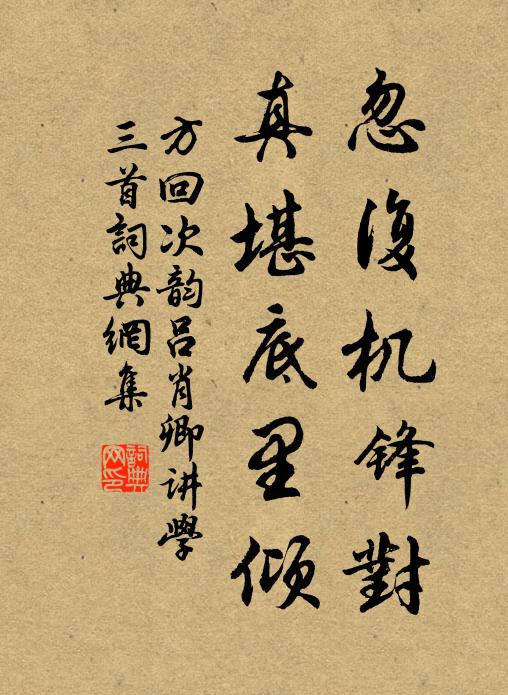 忽復机锋對
真堪底里傾
方回次韵吕肖卿讲學
三首詞典網集
詞典網印